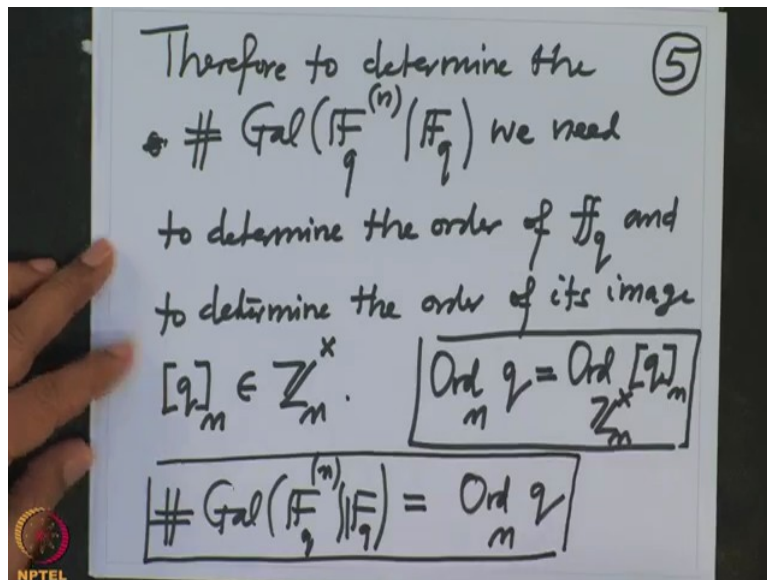 Therefore to determine the ⑤
# Gal(𝔽_q^(n) | 𝔽_q) we need
to determine the order of ff_q and
to determine the order of its image
[q]_n ∈ ℤ_n^×. Ord_n q = Ord_{ℤ_n^×} [q]_n
# Gal(𝔽_q^(n) | 𝔽_q) = Ord_n q
NPTEL